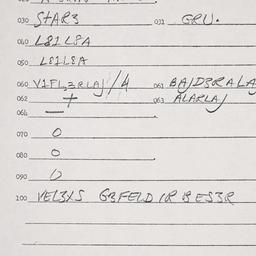 030 STAR3 031 GRU.
040 L81L8A
050 L81L8A
060 V1FL,3RLAJ/4 061 BAJD3RALA
062 + 063 ALARLAJ
064 —
070 0
080 0
090 0
100 VEL3XS G3FELD1R B ES3R